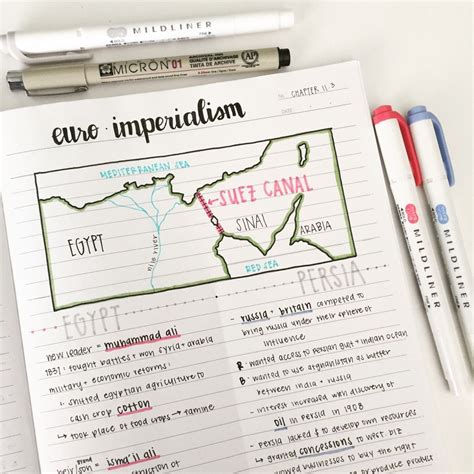 MILDLINER
MICRON 01
ARCHIVAL INK
QUALITÉ D'ARCHIVAGE
TINTA DE ARCHIVE
AP
euro · imperialism
CHAPTER 11.3
DATE:
MEDITERRANEAN SEA
SUEZ CANAL
EGYPT
nile river
SINAI
ARABIA
RED SEA
EGYPT
new leader = muhammad ali
1831: fought battles + won syria + arabia
military + economic reforms!
↳ shifted egyptian agriculture to
cash crop cotton
↳ took place of food crops → famine
new
son = isma'il ali
PERSIA
russia + britain competed to
bring russia under their sphere of
influence
R: wanted access to persian gulf + indian ocean
B: wanted to use afghanistan as buffer
between india + russia
- interest increased with discovery of
OIL in persia in 1908
- persia lacked $ to develop own resources
↳ granted concessions to west. biz
businesses to buy the right
MILDLINER
MILDLINER